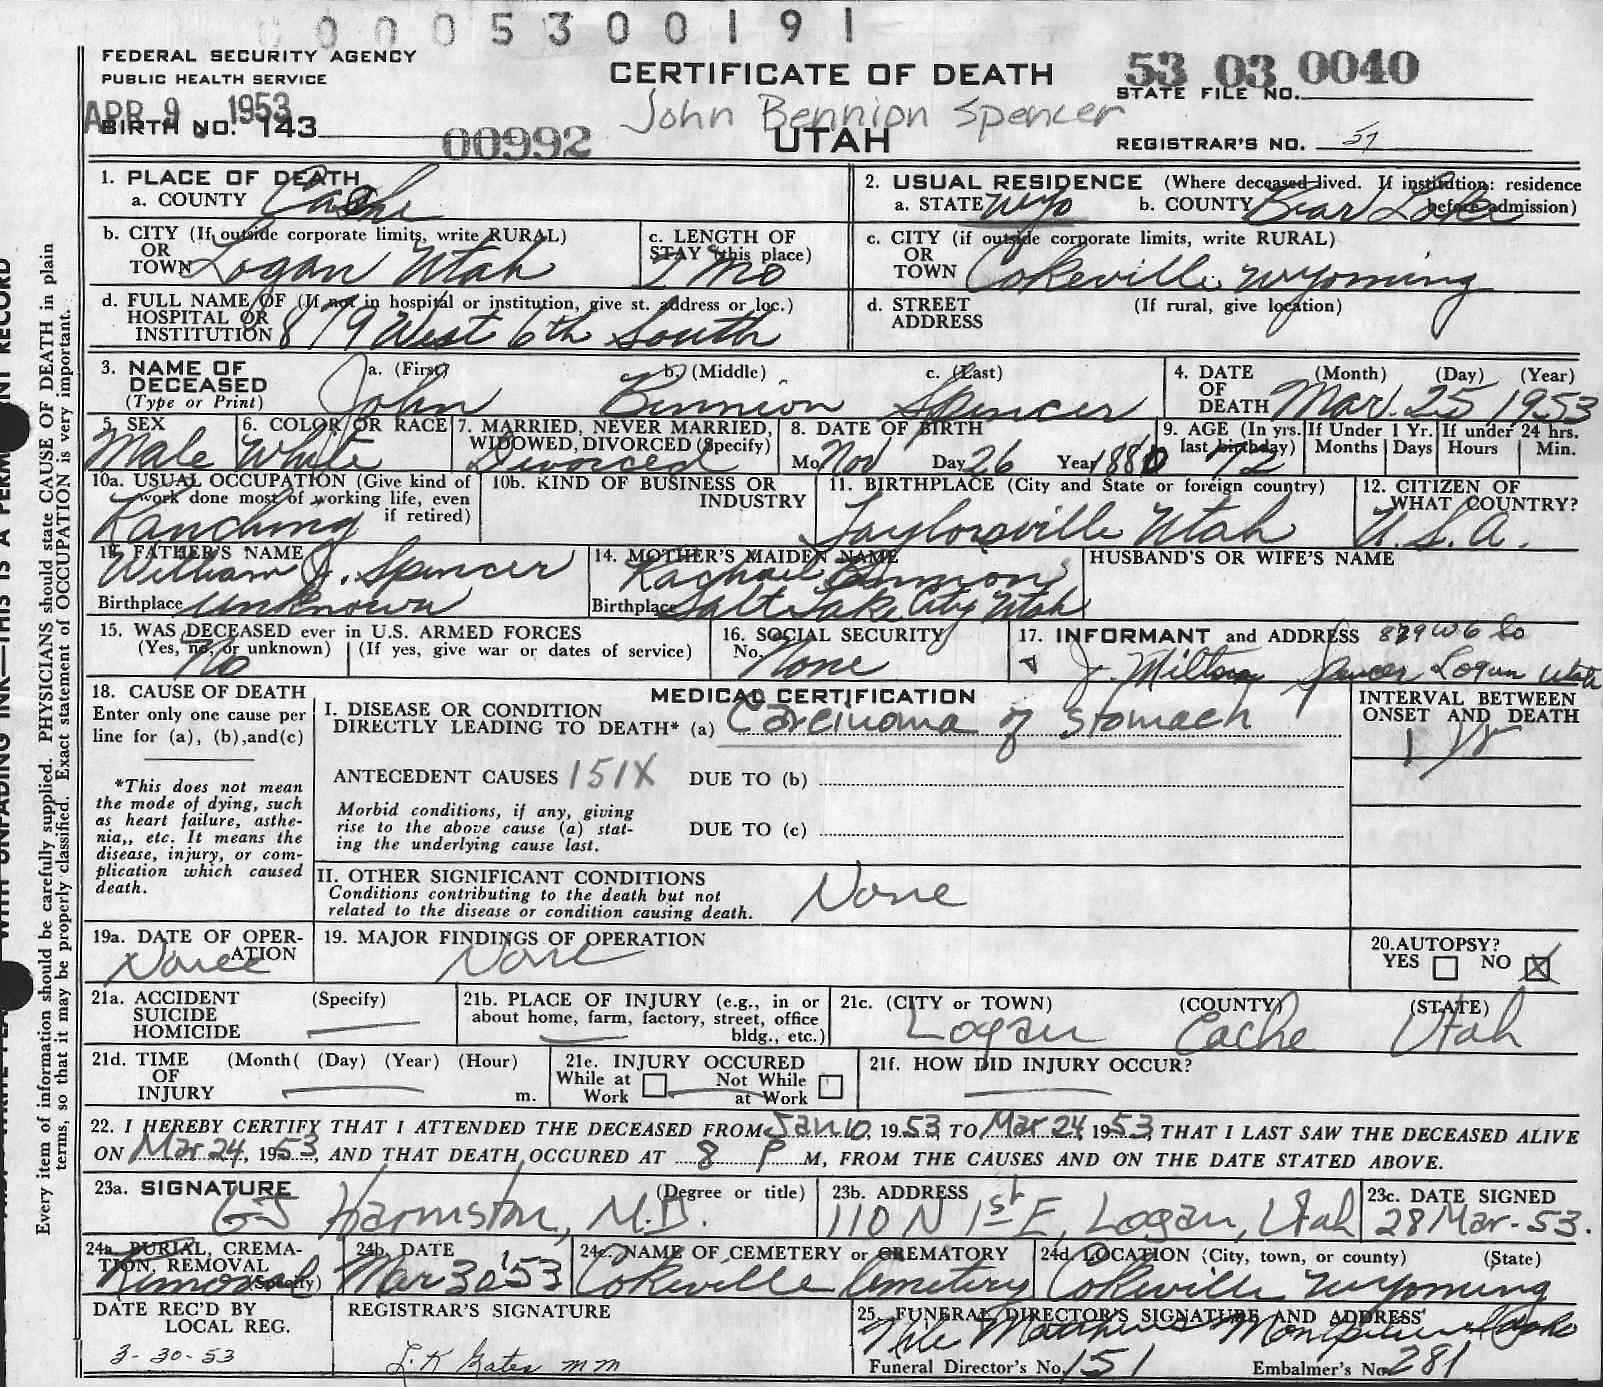 0005300191
FEDERAL SECURITY AGENCY
PUBLIC HEALTH SERVICE
CERTIFICATE OF DEATH
53 03 0040
STATE FILE NO.
APR 9 1953
BIRTH NO. 143
00992
John Bennion Spencer
UTAH
REGISTRAR'S NO. 57
1. PLACE OF DEATH
a. COUNTY Cache
2. USUAL RESIDENCE (Where deceased lived. If institution: residence before admission)
a. STATE Wyo b. COUNTY Bear Lake
b. CITY (If outside corporate limits, write RURAL)
OR TOWN Logan Utah
c. LENGTH OF STAY (this place)
2 Mo
c. CITY (if outside corporate limits, write RURAL)
OR TOWN Cokeville Wyoming
d. FULL NAME OF (If not in hospital or institution, give st. address or loc.)
HOSPITAL OR INSTITUTION 879 West 6th South
d. STREET ADDRESS (If rural, give location)
3. NAME OF DECEASED (Type or Print)
a. (First) b. (Middle) c. (Last)
John Bennion Spencer
4. DATE OF DEATH (Month) (Day) (Year)
Mar. 25 1953
5. SEX
Male
6. COLOR OR RACE
White
7. MARRIED, NEVER MARRIED, WIDOWED, DIVORCED (Specify)
Divorced
8. DATE OF BIRTH
Mo. Nov Day 26 Year 1880
9. AGE (In yrs. last birthday) 72
If Under 1 Yr. Months Days
If under 24 hrs. Hours Min.
10a. USUAL OCCUPATION (Give kind of work done most of working life, even if retired)
Ranching
10b. KIND OF BUSINESS OR INDUSTRY
11. BIRTHPLACE (City and State or foreign country)
Taylorsville Utah
12. CITIZEN OF WHAT COUNTRY?
U.S.A.
13. FATHER'S NAME
William J. Spencer
Birthplace Unknown
14. MOTHER'S MAIDEN NAME
Rachael Bennion
Birthplace Salt Lake City Utah
HUSBAND'S OR WIFE'S NAME
15. WAS DECEASED ever in U.S. ARMED FORCES
(Yes, no, or unknown) (If yes, give war or dates of service)
No
16. SOCIAL SECURITY No.
None
17. INFORMANT and ADDRESS 879 W 6 So
J. Milton Spencer Logan Utah
18. CAUSE OF DEATH
Enter only one cause per line for (a), (b),and(c)
*This does not mean the mode of dying, such as heart failure, asthenia,, etc. It means the disease, injury, or complication which caused death.
MEDICAL CERTIFICATION
I. DISEASE OR CONDITION
DIRECTLY LEADING TO DEATH* (a) Carcinoma of stomach
INTERVAL BETWEEN ONSET AND DEATH
1 yr
ANTECEDENT CAUSES 151X DUE TO (b)
Morbid conditions, if any, giving rise to the above cause (a) stating the underlying cause last.
DUE TO (c)
II. OTHER SIGNIFICANT CONDITIONS
Conditions contributing to the death but not related to the disease or condition causing death.
None
19a. DATE OF OPERATION
None
19. MAJOR FINDINGS OF OPERATION
None
20. AUTOPSY?
YES NO X
21a. ACCIDENT SUICIDE HOMICIDE (Specify)
21b. PLACE OF INJURY (e.g., in or about home, farm, factory, street, office bldg., etc.)
21c. (CITY or TOWN) (COUNTY) (STATE)
Logan Cache Utah
21d. TIME OF INJURY (Month( (Day) (Year) (Hour) m.
21e. INJURY OCCURED
While at Work Not While at Work
21f. HOW DID INJURY OCCUR?
22. I HEREBY CERTIFY THAT I ATTENDED THE DECEASED FROM Jan 10, 1953 TO Mar 24, 1953, THAT I LAST SAW THE DECEASED ALIVE
ON Mar 24, 1953, AND THAT DEATH OCCURED AT 8 P M, FROM THE CAUSES AND ON THE DATE STATED ABOVE.
23a. SIGNATURE (Degree or title)
GJ Harmston, M.D.
23b. ADDRESS
110 N 1st E, Logan, Utah
23c. DATE SIGNED
28 Mar-53.
24a. BURIAL, CREMATION, REMOVAL (Specify)
Removal
24b. DATE
Mar 30 '53
24c. NAME OF CEMETERY or CREMATORY
Cokeville Cemetery
24d. LOCATION (City, town, or county) (State)
Cokeville Wyoming
DATE REC'D BY LOCAL REG.
3-30-53
REGISTRAR'S SIGNATURE
L.K. Gates mm
25. FUNERAL DIRECTOR'S SIGNATURE AND ADDRESS
Matthews Montpelier Idaho
Funeral Director's No. 151 Embalmer's No. 281
Every item of information should be carefully supplied. PHYSICIANS should state CAUSE OF DEATH in plain
terms, so that it may be properly classified. Exact statement of OCCUPATION is very important.
WITH UNFADING INK—THIS IS A PERM NT RECORD